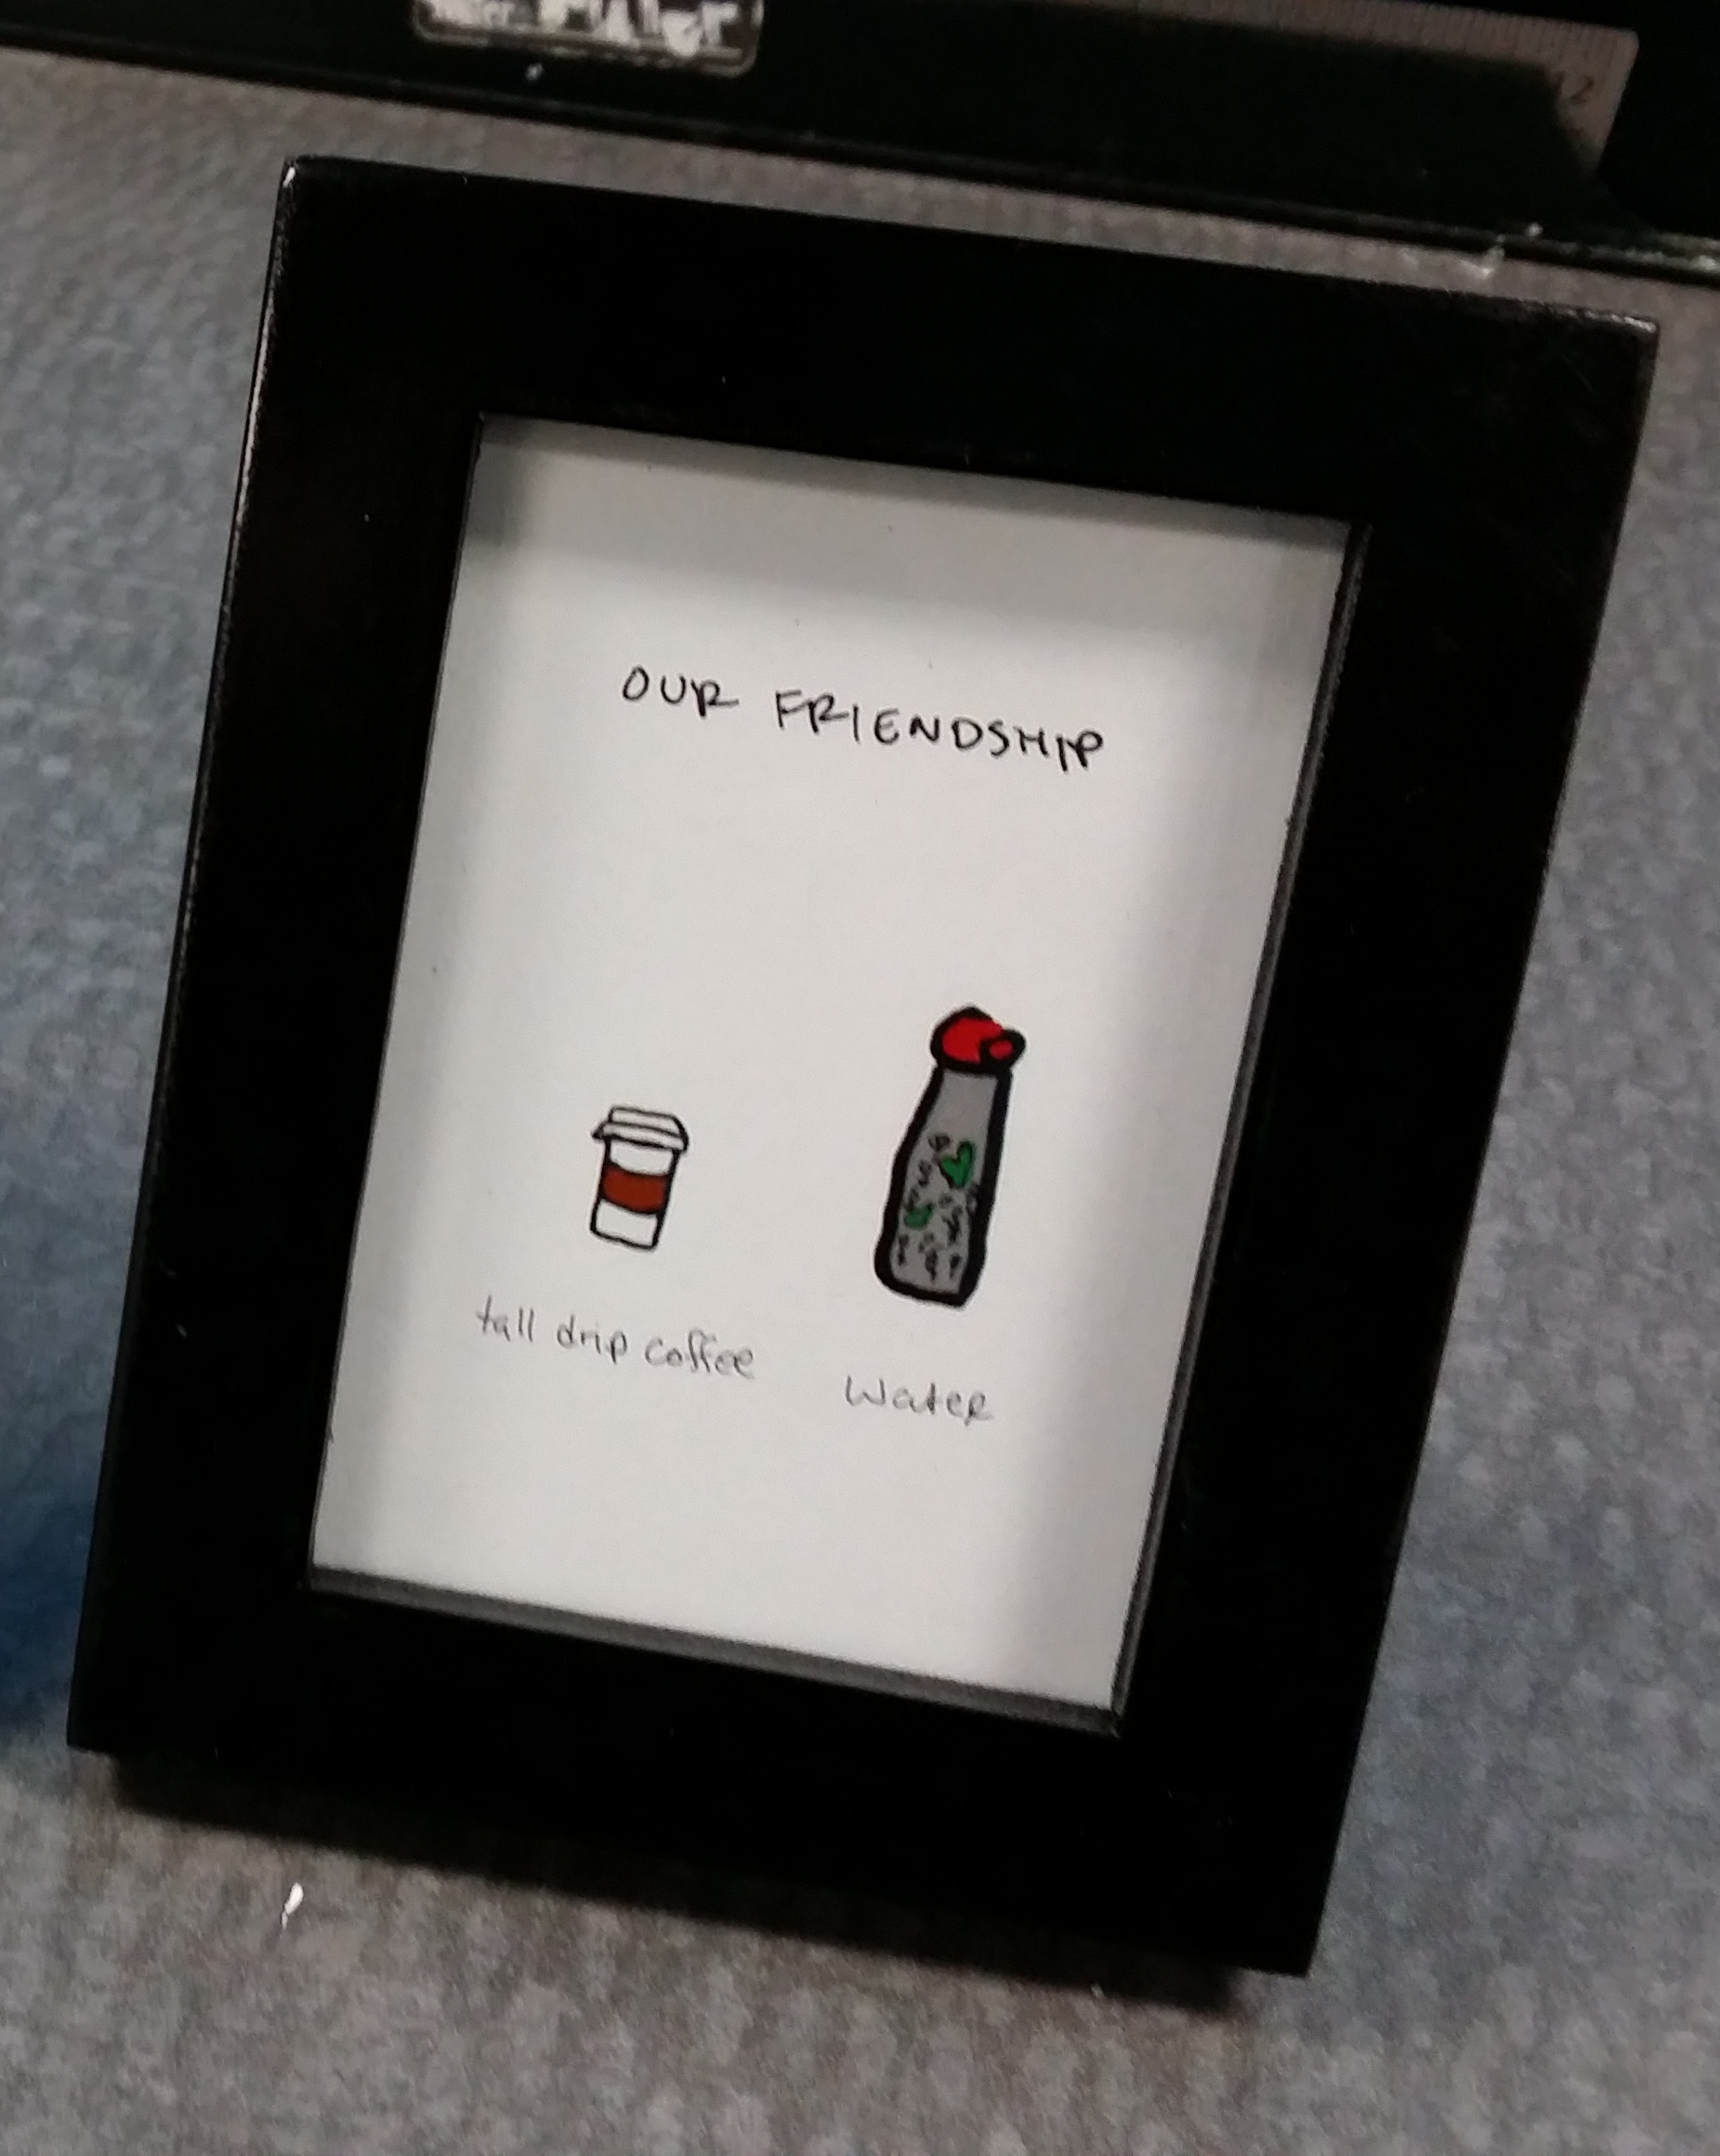 OUR FRIENDSHIP
tall drip coffee
Water
12